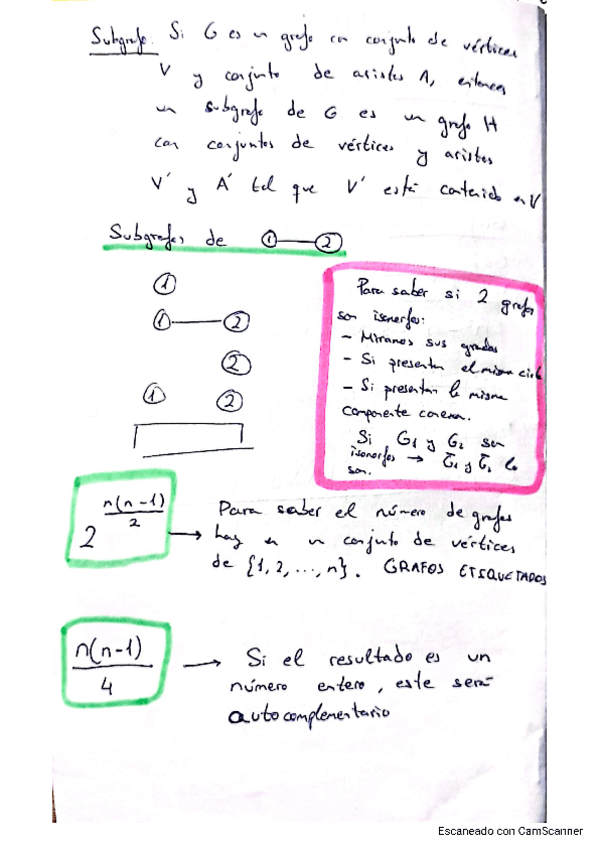 Subgrafo. Si G es un grafo con conjunto de vértices
V y conjunto de aristas A, entonces
un subgrafo de G es un grafo H
con conjuntos de vértices y aristas
V´ y A´ tal que V´ está contenido en V
Subgrafos de 1 2
1
1 2
2
1 2
Para saber si 2 grafos
son isomorfos:
- Miramos sus grados
- Si presentan el mismo ciclo
- Si presentan la misma
componente conexa.
Si G1 y G2 son
isomorfos → G̅1 y G̅2 lo
son.
2^(n(n-1)/2) → Para saber el número de grafos
hay en un conjunto de vértices
de {1, 2, ..., n}. GRAFOS ETIQUETADOS
n(n-1)/4 → Si el resultado es un
número entero, este será
autocomplementario
Escaneado con CamScanner